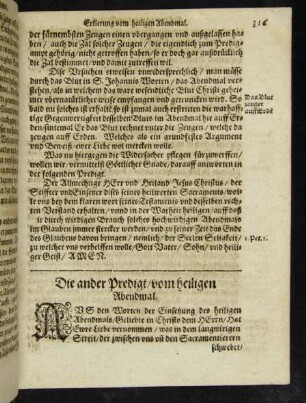 Erklerung vom heiligen Abendmal.
216
der fürnembsten Zeugen einen vbergangen vnd außgelassen ha-
ben / auch die Zal solcher Zeugen / die eigendlich zum Predig-
ampt gehörig / nicht getroffen haben / so er doch gar außdrücklich
die Zal bestimmet / vnd damit zutreffen wil.
Dise Vrsachen erweisen vnwidersprechlich / man müsse
durch das Blut in S. Johannis Worten / das Abendmal ver-
stehen / als in welchem das ware wesendliche Blut Christi geheis-
mer vbernatürlicher weise empfangen vnd getruncken wird. So
bald nu solches ist erhalte so ist zumal auch erstritten die warhaf-
tige Gegenwertigkeit desselben Bluts im Abendmal hie auff Er-
den sintemal Er das Blut rechnet vnter die Zeugen / welche da
zeugen auff Erden. Welches als ein grundfestes Argument
vnd Beweiß ewer Liebe wol mercken wolle.
Das Blut
zeuget
auff Erde
Was nu hiergegen die Widersacher pflegen fürzuwerffen /
wollen wir / vermittelst Göttlicher Gnade / darauff antworten in
der folgenden Predigt.
Der Almechtige HErr vnd Heiland Jesus Christus / der
Stiffter vnd Einsetzer diß seines hochwirden Sacraments / wol-
le vns bey dem klaren wort seines Testaments vnd desselben rech-
ten Verstand erhalten / vnd in der Warheit heiligen / auff daß
wir durch wirdigen Brauch solches hochwirdigen Abendmals
im Glauben immer stercker werden / vnd zu seiner zeit das Ende
des Glaubens davon bringen / nemlich / der Seelen Seligkeit /
zu welcher vns verhelffen wolle / Gott Vater / Sohn / vnd heili-
ger Geist / AMEN.
1. Pet. 1.
Die ander Predigt / vom heiligen
Abendmal.
AVS den Worten der Einsetzung des heiligen
Abendmals / Geliebte in Christo dem HErrn / Hat
Ewre Liebe vernommen / was in dem langwirigen
Streit / der zwischen vns vñ den Sacramentierern
schwebet /